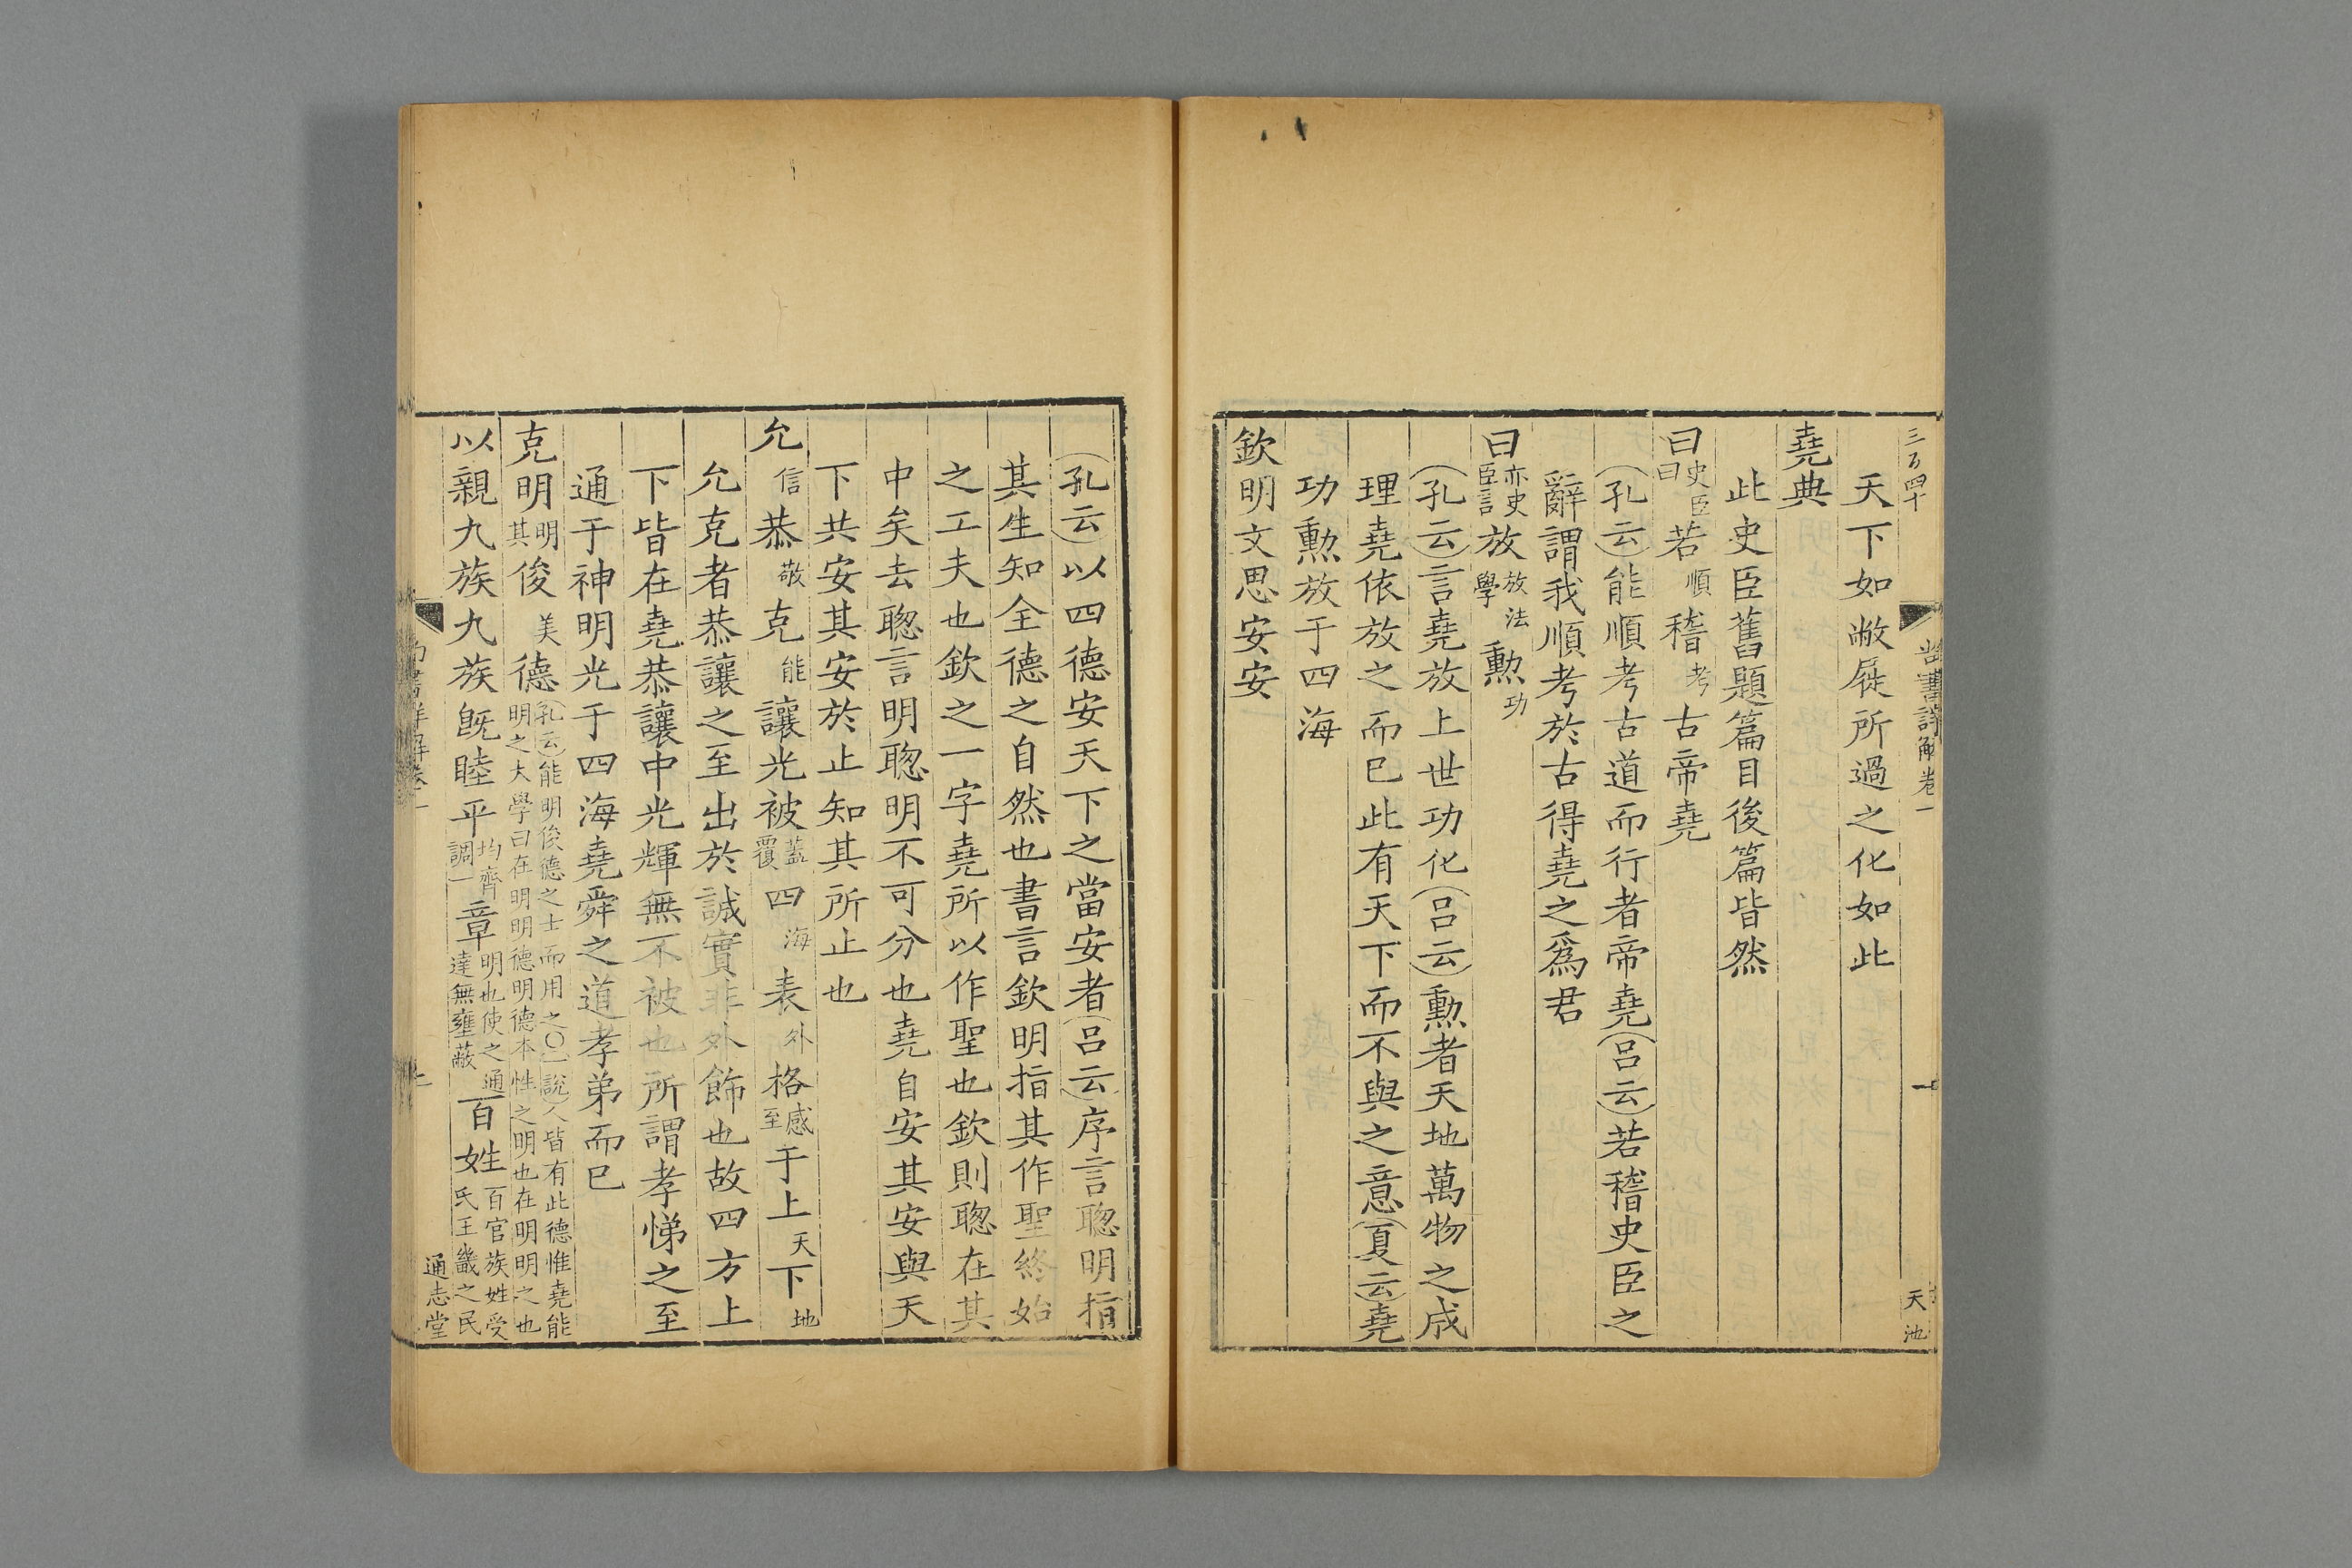 三百四十
尚書詳解卷一
一
天池
天下如敝屣所過之化如此
堯典
此史臣舊題篇目後篇皆然
曰史臣曰若順稽考古帝堯
孔云能順考古道而行者帝堯呂云若稽史臣之
辭謂我順考於古得堯之爲君
曰亦史臣言放放法學勲功
孔云言堯放上世功化呂云勲者天地萬物之成
理堯依放之而已此有天下而不與之意夏云堯
功勲放于四海
欽明文思安安
孔云以四德安天下之當安者呂云序言聦明指
其生知全德之自然也書言欽明指其作聖終始
之工夫也欽之一字堯所以作聖也欽則聦在其
中矣去聦言明聦明不可分也堯自安其安與天
下共安其安於止知其所止也
允信恭敬克能讓光被蓋覆四海表外格感至于上天下地
允克者恭讓之至出於誠實非外飾也故四方上
下皆在堯恭讓中光輝無不被也所謂孝悌之至
通于神明光于四海堯舜之道孝弟而已
克明明其俊美德孔云能明俊德之士而用之〇一說人皆有此德惟堯能明之大學曰在明明德明德本性之明也在明明之也
以親九族九族旣睦平均齊調一章明也使之通達無壅蔽百姓百官族姓受氏王畿之民
通志堂